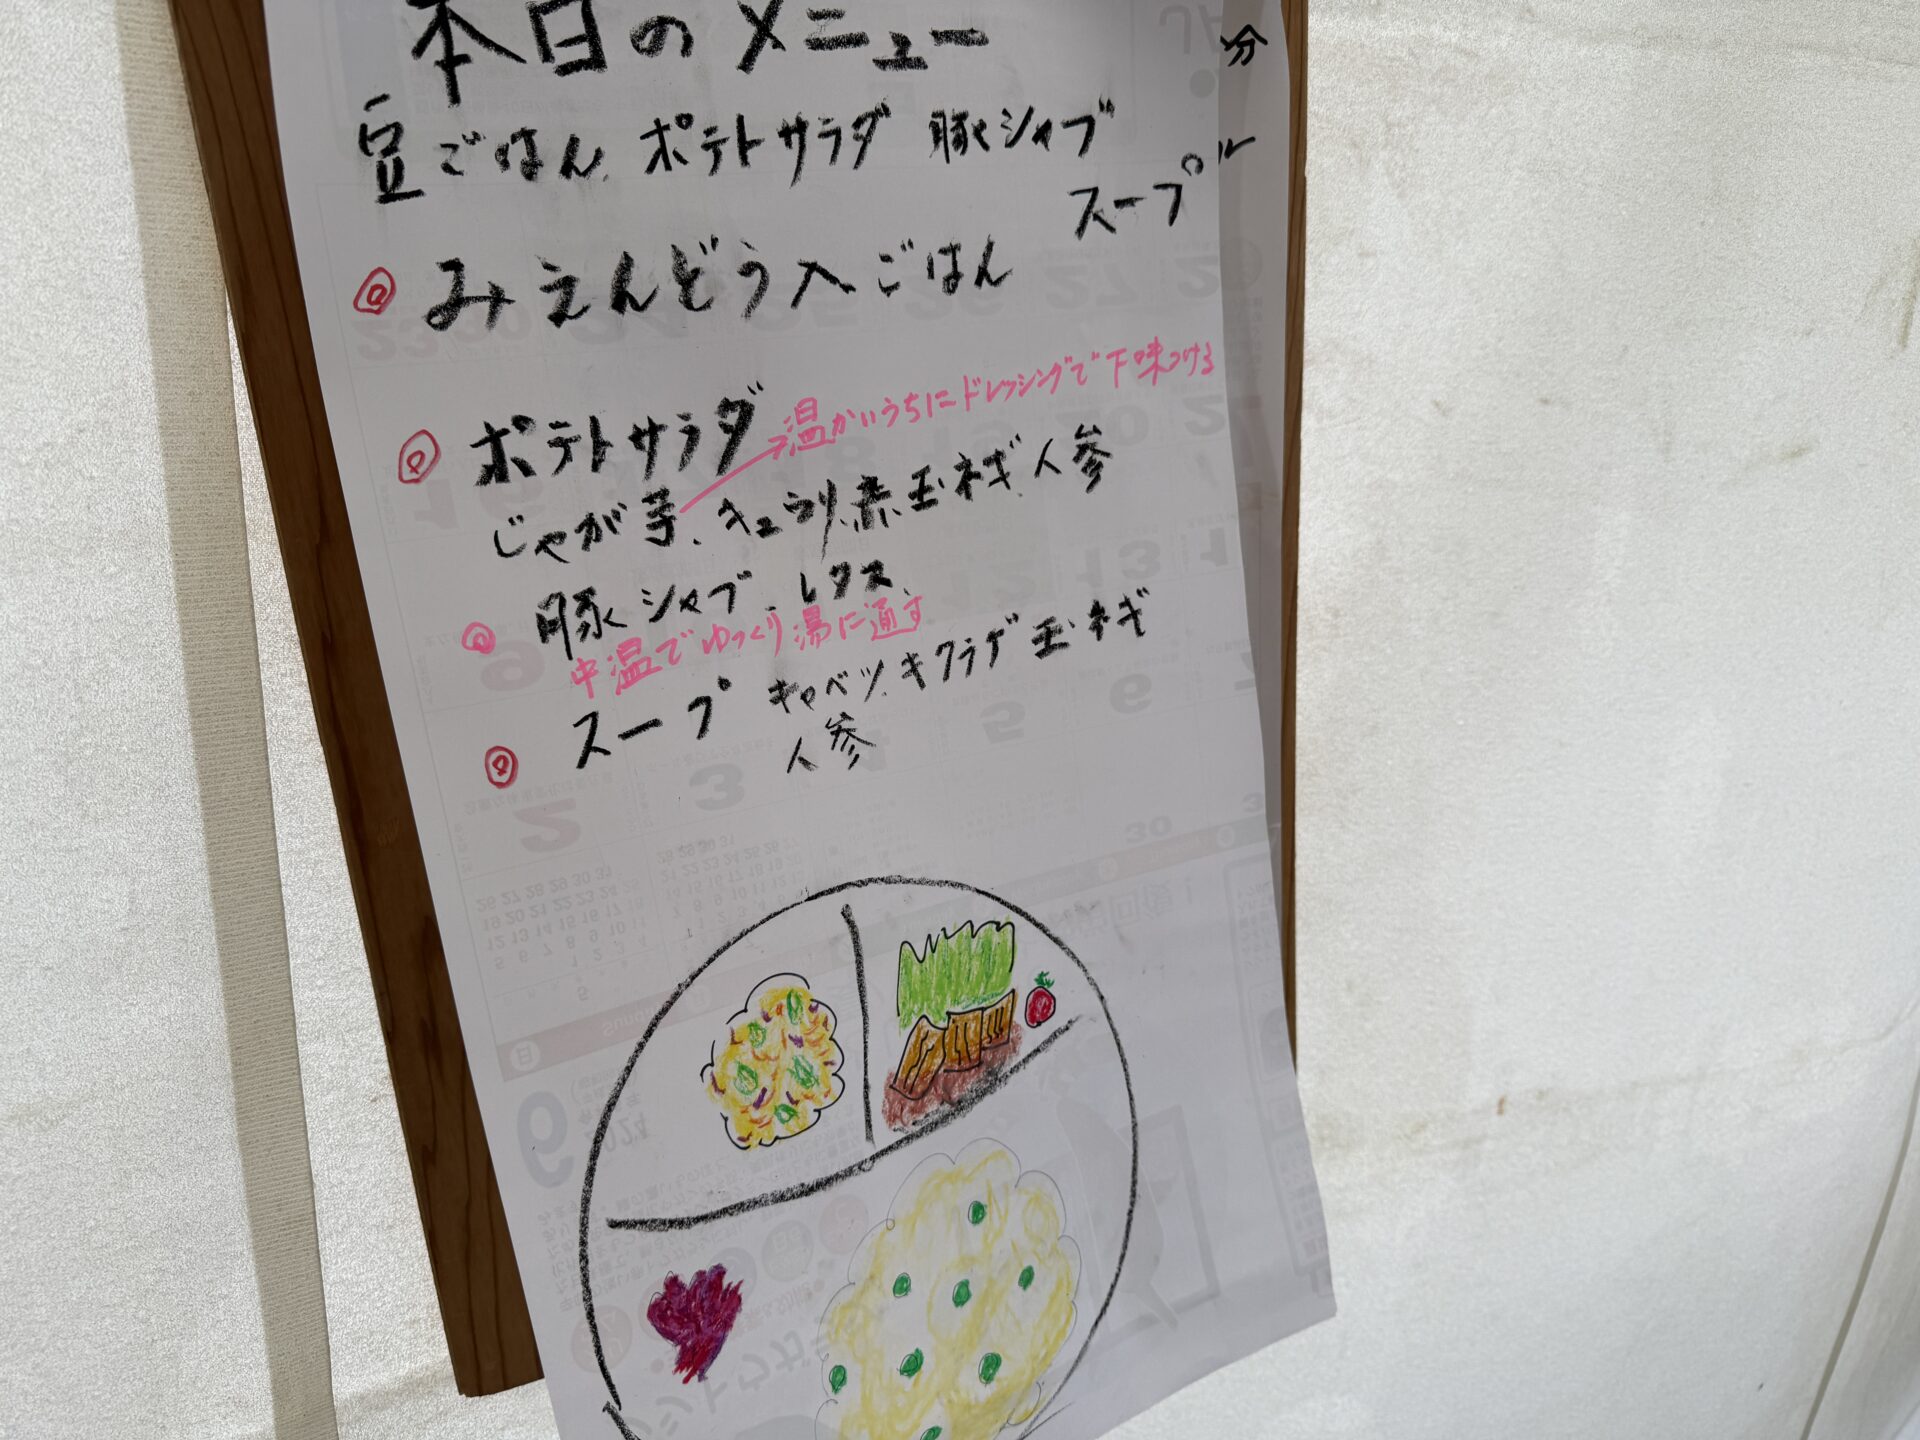 本日のメニュー
分
豆ごはん、ポテトサラダ 豚シャブ
スープ
ル
みえんどう入ごはん
ポテトサラダ
温かいうちにドレッシングで下味つける
じゃが芋、キュウリ、赤玉ネギ、人参
豚シャブ、レタス、
中温でゆっくり湯に通す
スープ キャベツ、キクラゲ 玉ネギ
人参